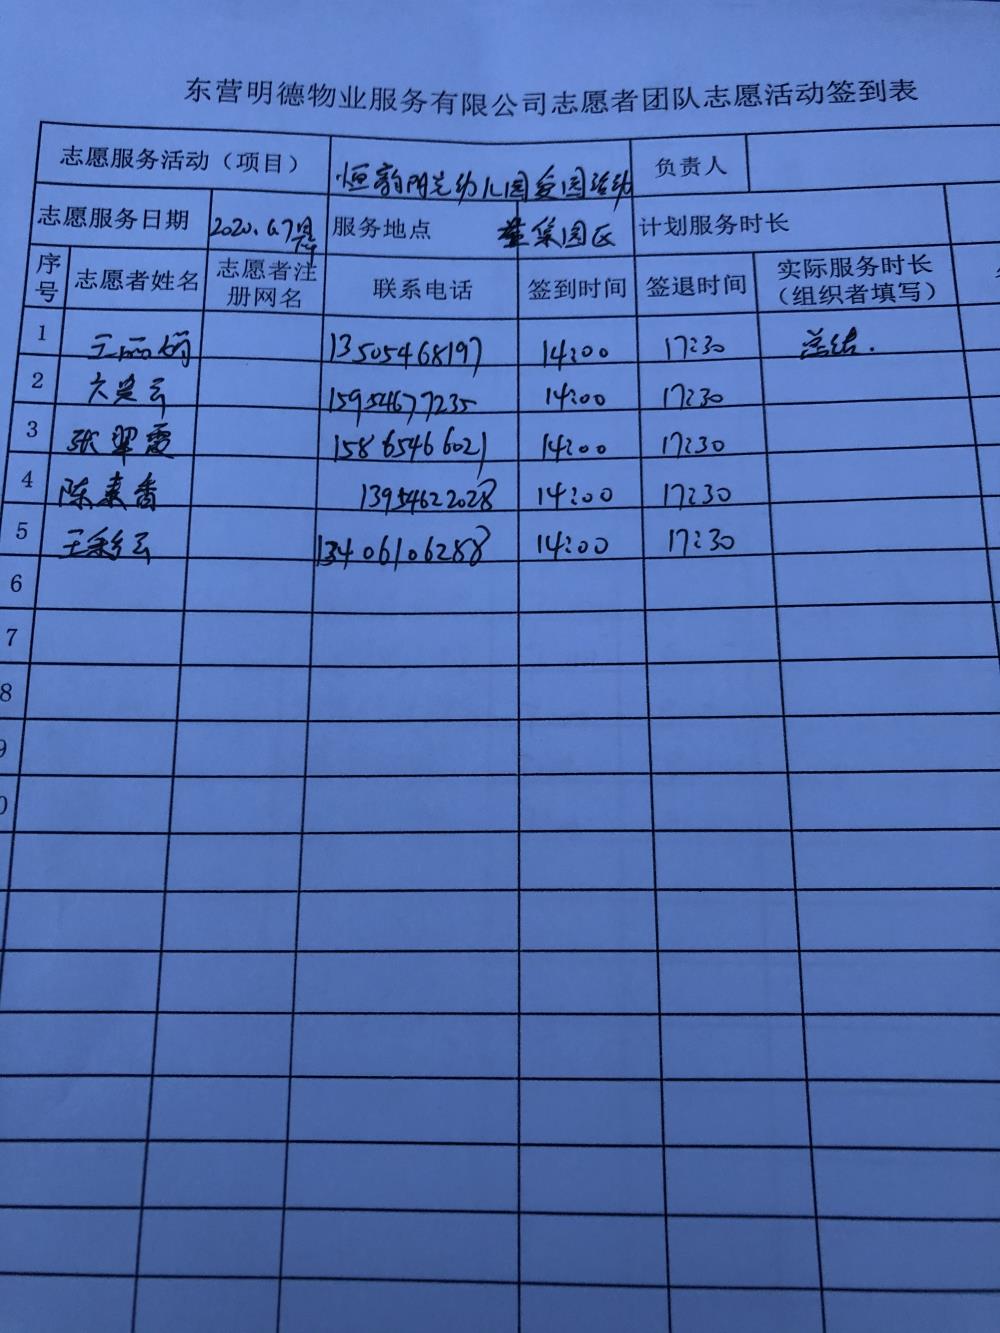 东营明德物业服务有限公司志愿者团队志愿活动签到表
志愿服务活动（项目） 恒韵阳光幼儿园爱园活动 负责人
志愿服务日期 2020.6.7 服务地点 董集园区 计划服务时长
序号 志愿者姓名 志愿者注册网名 联系电话 签到时间 签退时间 实际服务时长（组织者填写）
1 王丽娟 13505468197 14:00 17:30 总结.
2 15954677235 14:00 17:30
3 张翠霞 15865466021 14:00 17:30
4 陈素香 13954622028 14:00 17:30
5 王彩云 13406106288 14:00 17:30
6
7
8
9
0